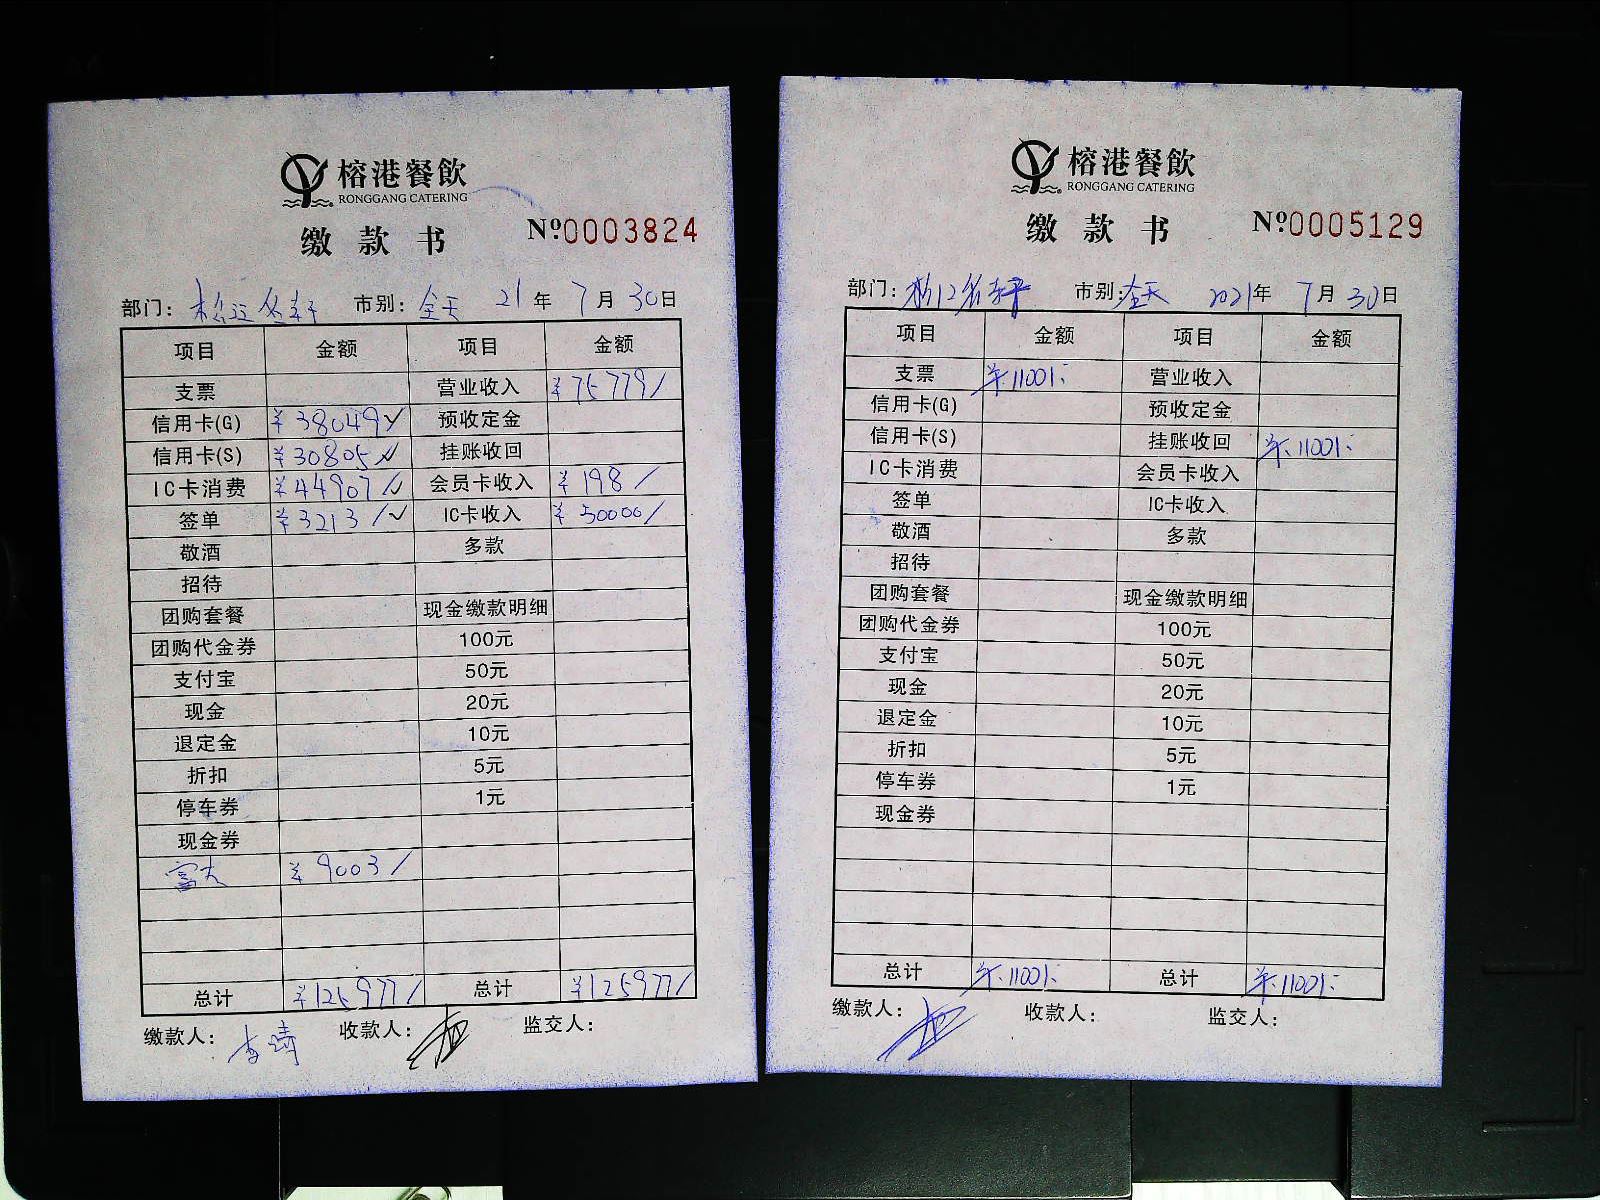 榕港餐飲
RONGGANG CATERING
缴款书
№0003824
部门: 市别: 全天 21年7月30日
项目 金额 项目 金额
支票 营业收入 ¥75779/
信用卡(G) ¥38049 预收定金
信用卡(S) ¥30805 挂账收回
IC卡消费 ¥44907/ 会员卡收入 ¥198/
签单 ¥3213/ IC卡收入 ¥50000/
敬酒 多款
招待
团购套餐 现金缴款明细
团购代金券 100元
支付宝 50元
现金 20元
退定金 10元
折扣 5元
停车券 1元
现金券
¥9003/
总计 ¥125977/ 总计 ¥125977/
缴款人: 收款人: 监交人:
榕港餐飲
RONGGANG CATERING
缴款书
№0005129
部门: 市别: 全天 2021年7月30日
项目 金额 项目 金额
支票 ¥11001: 营业收入
信用卡(G) 预收定金
信用卡(S) 挂账收回 ¥11001:
IC卡消费 会员卡收入
签单 IC卡收入
敬酒 多款
招待
团购套餐 现金缴款明细
团购代金券 100元
支付宝 50元
现金 20元
退定金 10元
折扣 5元
停车券 1元
现金券
总计 ¥11001: 总计 ¥11001:
缴款人: 收款人: 监交人: